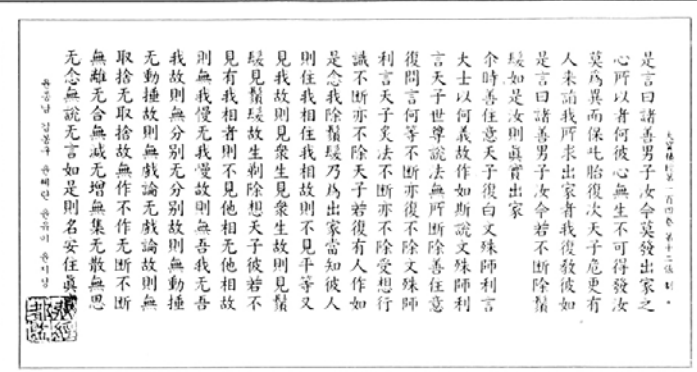 大寶積經第一百四卷 第十二張
是言曰諸善男子汝今莫發出家之
心所以者何彼心無生不可得發汝
莫爲異而保此胎復次天子更有
人来詣我所求出家者我復發彼如
是言曰諸善男子汝今若不断除鬚
髮如是汝則眞實出家
尒時善住意天子復白文殊師利言
大士以何義故作如斯說文殊師利
言天子世尊說法無所断除善住意
復問言何等不断亦復不除文殊師
利言天子法不断亦不除受想行
識不断亦不除天子若復有人作如
是念我除鬚髮乃爲出家當知彼人
則住我相住我相故則不見平等又
見我故則見衆生見衆生故則見鬚
髮見鬚髮故生剃除想天子彼若不
見有我相者則不見他相无他相故
則無我慢无我慢故則無吾我无吾
我故則無分别无分别故則無動揺
无動揺故則無戲論无戲論故則無
取捨无取捨故無作不作无断不断
無離无合無減无增無集无散無思
无念無說无言如是則名安住眞
윤종남 김봉구 윤혜란 윤유미 윤지상